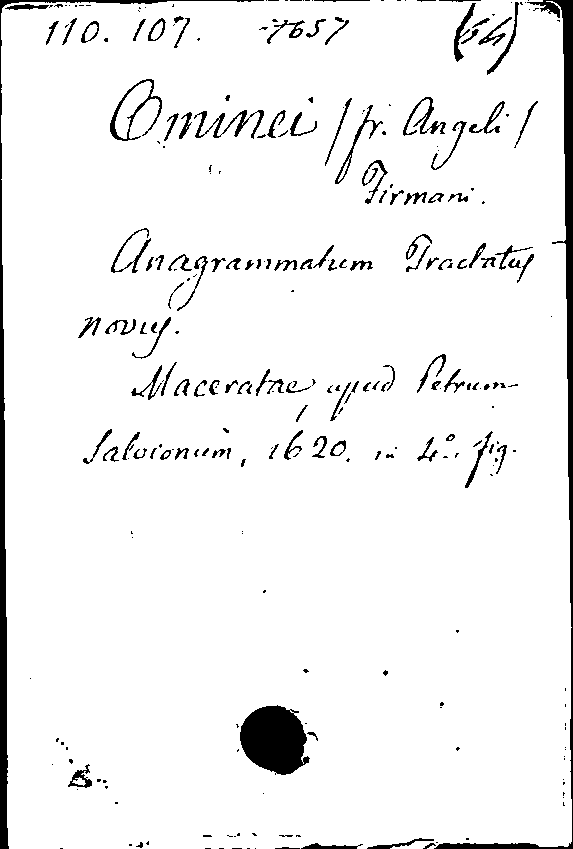 110. 107. -7657 (54)
Ominei /fr. Angeli/
Firmani.
Anagrammatum Tractatus
novus.
Maceratae, apud Petrum
Salvionum, 1620. in 4º. fig.
B